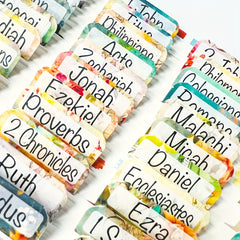 Titus
Philippians
Acts
Zechariah
Jonah
Ezekiel
Proverbs
2 Chronicles
Ruth
Philemon
Romans
Malachi
Micah
Daniel
Ecclesiastes
Ezra